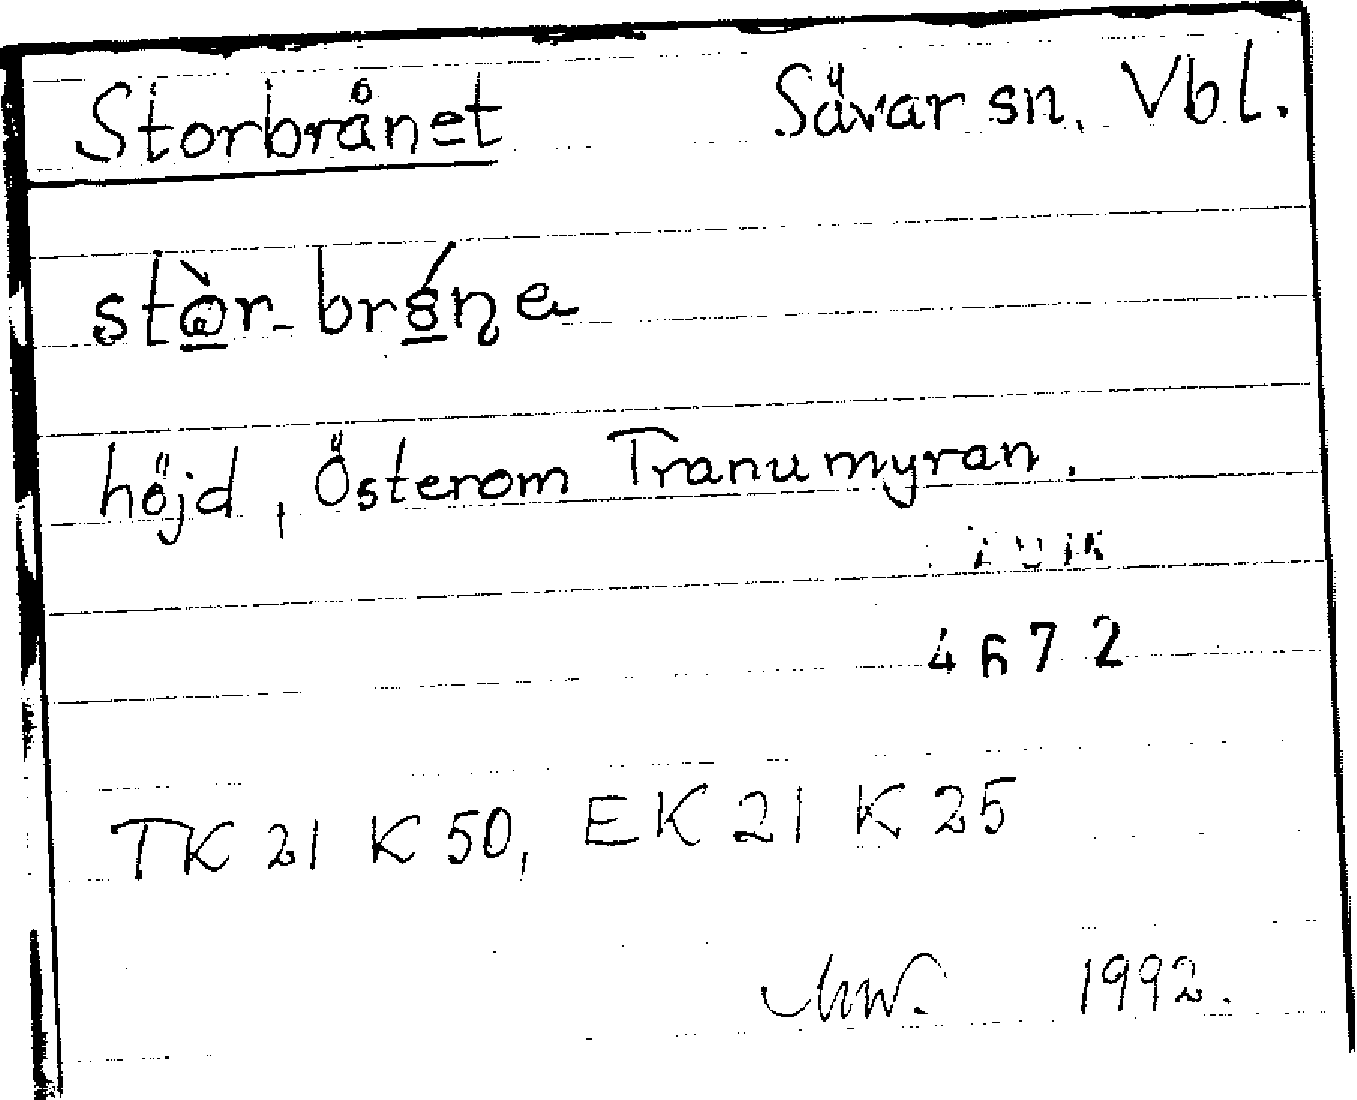 Storbrånet Sävar sn. Vbl.
höjd, Österom Tranumyran.
4672
TK 21 K 50, EK 21 K 25
1992.